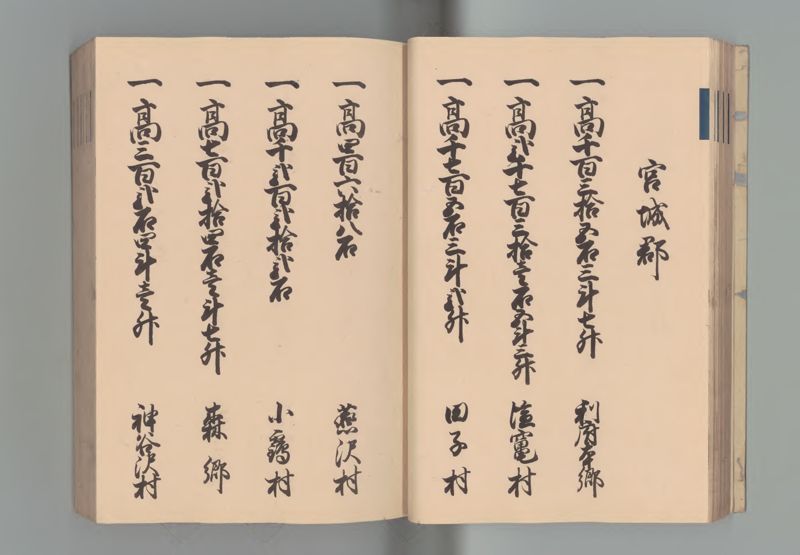 宮城郡
一高千百三拾五石三斗七升 利府本郷
一高弐千七百三拾壱石五斗三升 塩竈村
一高千七百五石三斗弐升 田子村
一高四百六拾八石 燕沢村
一高千弐百弐拾弐石 小鶴村
一高七百弐拾四石壱斗七升 森郷
一高三百弐石四斗壱升 神谷沢村